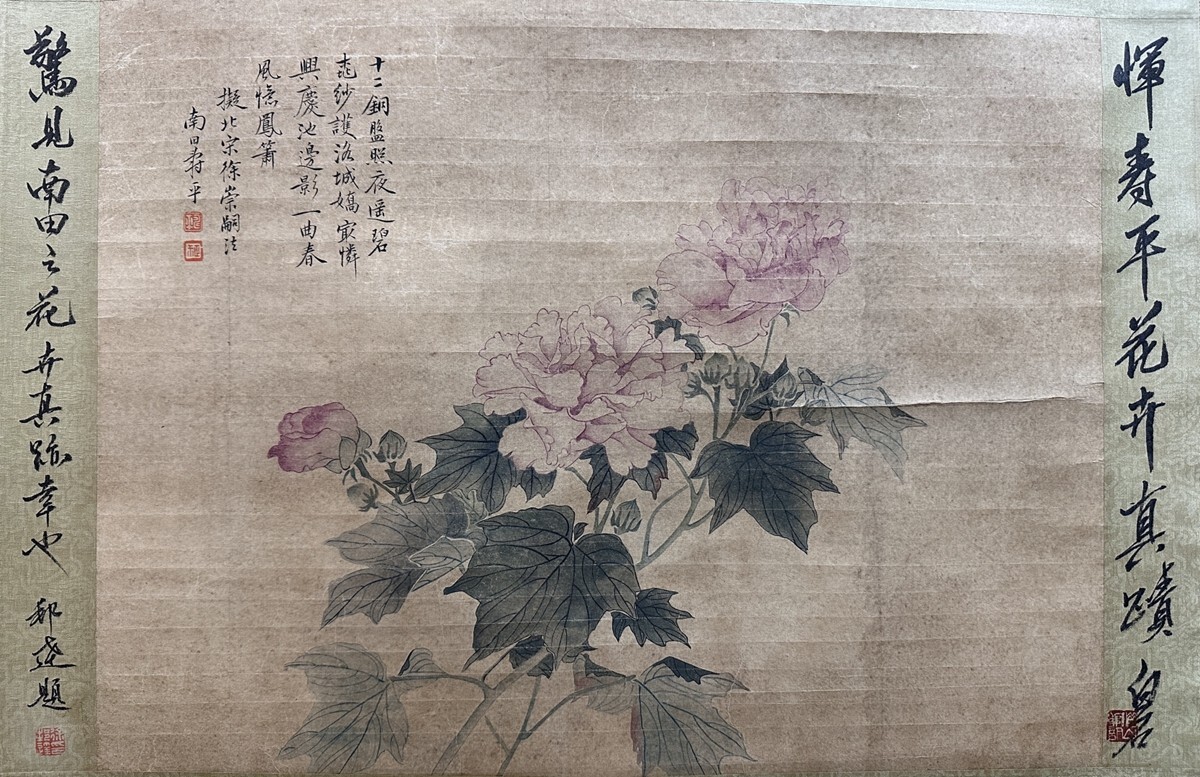 惲寿平花卉真蹟
十二銅盤照夜遥碧
紗護洛城嬌寂憐
興慶池邊影一曲春
風憶鳳簫
擬北宗徐崇嗣法
南田寿平
驚見南田之花卉真跡幸也
題